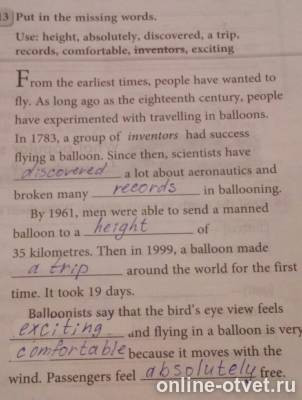 13 Put in the missing words.
Use: height, absolutely, discovered, a trip,
records, comfortable, inventors, exciting
From the earliest times, people have wanted to
fly. As long ago as the eighteenth century, people
have experimented with travelling in balloons.
In 1783, a group of inventors had success
flying a balloon. Since then, scientists have
discovered a lot about aeronautics and
broken many records in ballooning.
By 1961, men were able to send a manned
balloon to a height of
35 kilometres. Then in 1999, a balloon made
a trip around the world for the first
time. It took 19 days.
Balloonists say that the bird's eye view feels
exciting and flying in a balloon is very
comfortable because it moves with the
wind. Passengers feel absolutely free.
online-otvet.ru